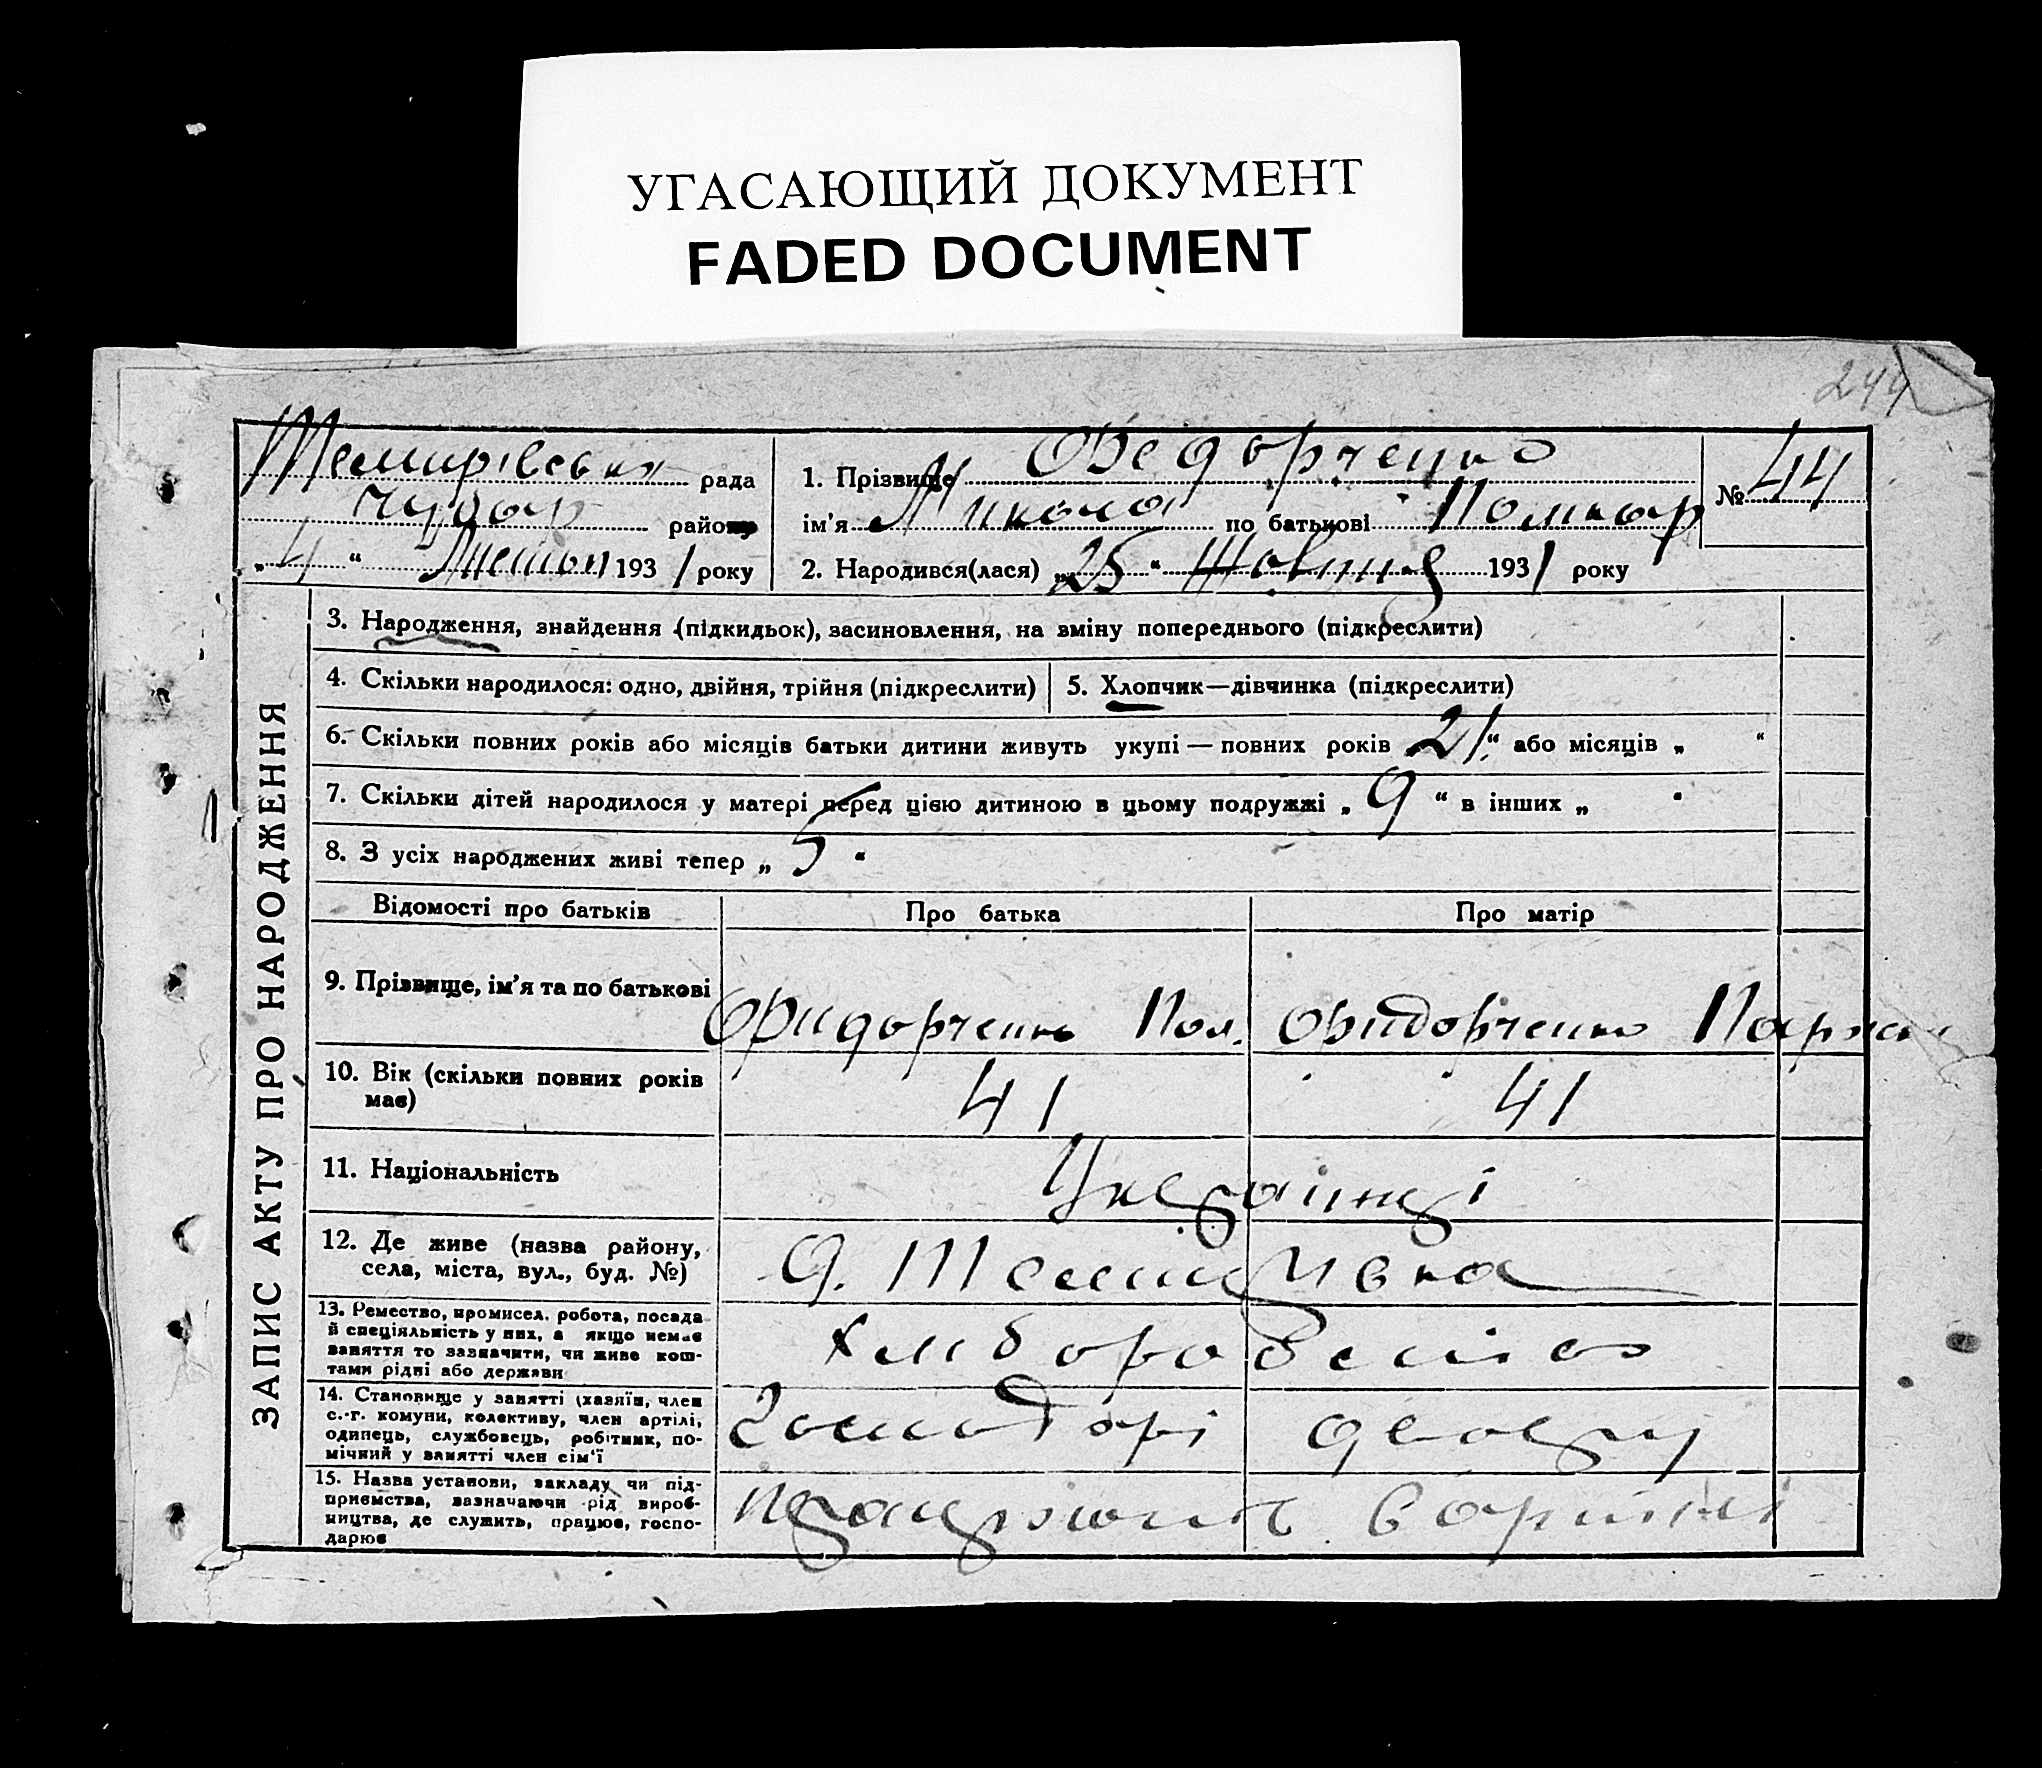 УГАСАЮЩИЙ ДОКУМЕНТ
FADED DOCUMENT
244
ЗАПИС АКТУ ПРО НАРОДЖЕННЯ
Темирівська рада
району
„4“ 1931 року
1. Прізвище Федорченко
ім'я Микола по батькові
№ 44
2. Народився(лася) „25“ Жовтня 1931 року
3. Народження, знайдення (підкидьок), засиновлення, на зміну попереднього (підкреслити)
4. Скільки народилося: одно, двійня, трійня (підкреслити)
5. Хлопчик—дівчинка (підкреслити)
6. Скільки повних років або місяців батьки дитини живуть укупі — повних років „21“ або місяців „ “
7. Скільки дітей народилося у матері перед цією дитиною в цьому подружжі „9“ в інших „ “
8. З усіх народжених живі тепер „5“
Відомості про батьків
Про батька
Про матір
9. Прізвище, ім'я та по батькові
Фидорченко Пол.
Фидорченко
10. Вік (скільки повних років має)
41
41
11. Національність
Українці
12. Де живе (назва району,
села, міста, вул., буд. №)
13. Ремество, промисел, робота, посада
й спеціяльність у них, а якщо немає
заняття то зазначити, чи живе кош-
тами рідні або держави
14. Становище у занятті (хазяїн, член
с.-г. комуни, колективу, член артілі,
одинець, службовець, робітник, по-
мічний у занятті член сім'ї
двору
15. Назва установи, закладу чи під-
приємства, зазначаючи рід вироб-
ництва, де служить, працює, госпо-
дарює